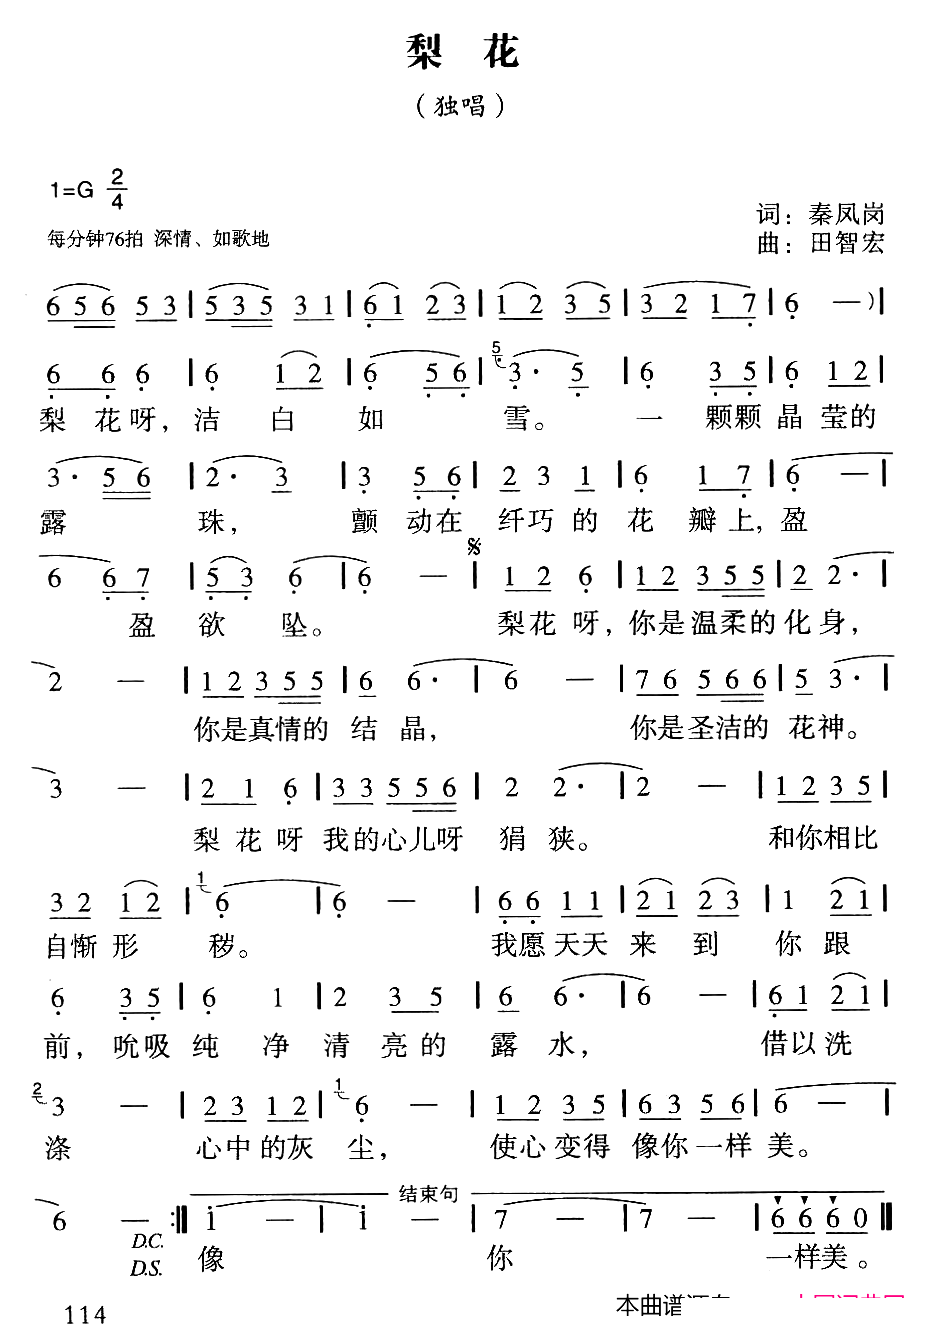 梨 花
（独唱）
1=G 2/4
每分钟76拍 深情、如歌地
词：秦凤岗
曲：田智宏
6 5 6 5 3 | 5 3 5 3 1 | 6 1 2 3 | 1 2 3 5 | 3 2 1 7 | 6 — ) |
6 6 6 | 6 1 2 | 6 5 6 | 5 3· 5 | 6 3 5 | 6 1 2 |
梨 花 呀， 洁 白 如 雪。 一 颗颗 晶 莹的
3· 5 6 | 2· 3 | 3 5 6 | 2 3 1 | 6 1 7 | 6 — |
露 珠， 颤 动在 纤巧 的 花 瓣上， 盈
6 6 7 | 5 3 6 | 6 — | 1 2 6 | 1 2 3 5 5 | 2 2· |
盈 欲 坠。 梨花 呀， 你是温柔的 化身，
2 — | 1 2 3 5 5 | 6 6· | 6 — | 7 6 5 6 6 | 5 3· |
你是真情的 结 晶， 你是圣洁的 花神。
3 — | 2 1 6 | 3 3 5 5 6 | 2 2· | 2 — | 1 2 3 5 |
梨 花 呀 我的心儿呀 狷 狭。 和你相比
3 2 1 2 | 1 6 | 6 — | 6 6 1 1 | 2 1 2 3 | 1 2 1 |
自惭 形 秽。 我愿天天 来 到 你 跟
6 3 5 | 6 1 | 2 3 5 | 6 6· | 6 — | 6 1 2 1 |
前， 吮吸 纯 净 清 亮的 露 水， 借以洗
2 3 — | 2 3 1 2 | 1 6 — | 1 2 3 5 | 6 3 5 6 | 6 — |
涤 心中 的灰 尘， 使心 变得 像你 一样 美。
结束句
6 — :‖ i — | i — | 7 — | 7 — | 6 6 6 0 ‖
D.C.
D.S.
像 你 一样美 。
114
本曲谱